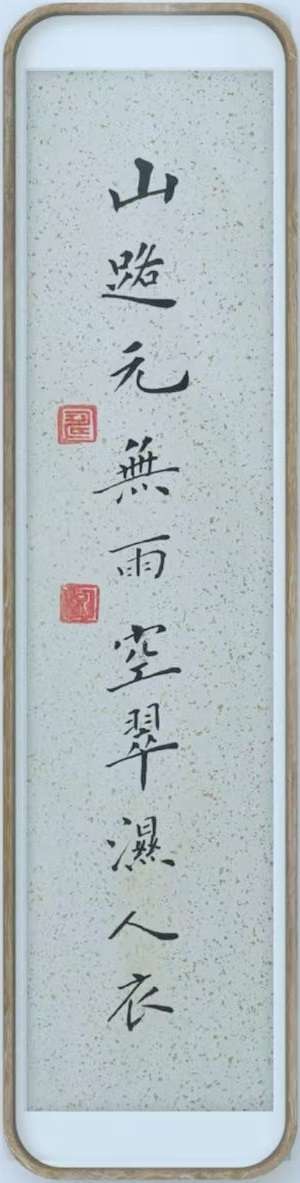 山路元無雨空翠濕人衣